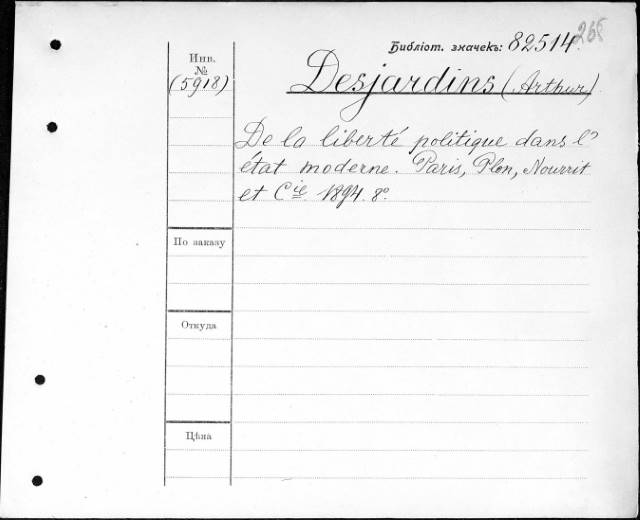 268
Библіот. значекъ: 82514.
Инв.
№
(5918)
Desjardins (Arthur)
De la liberté politique dans l'
état moderne. Paris, Plon, Nourrit
et Cie 1894. 8º.
По заказу
Откуда
Цѣна